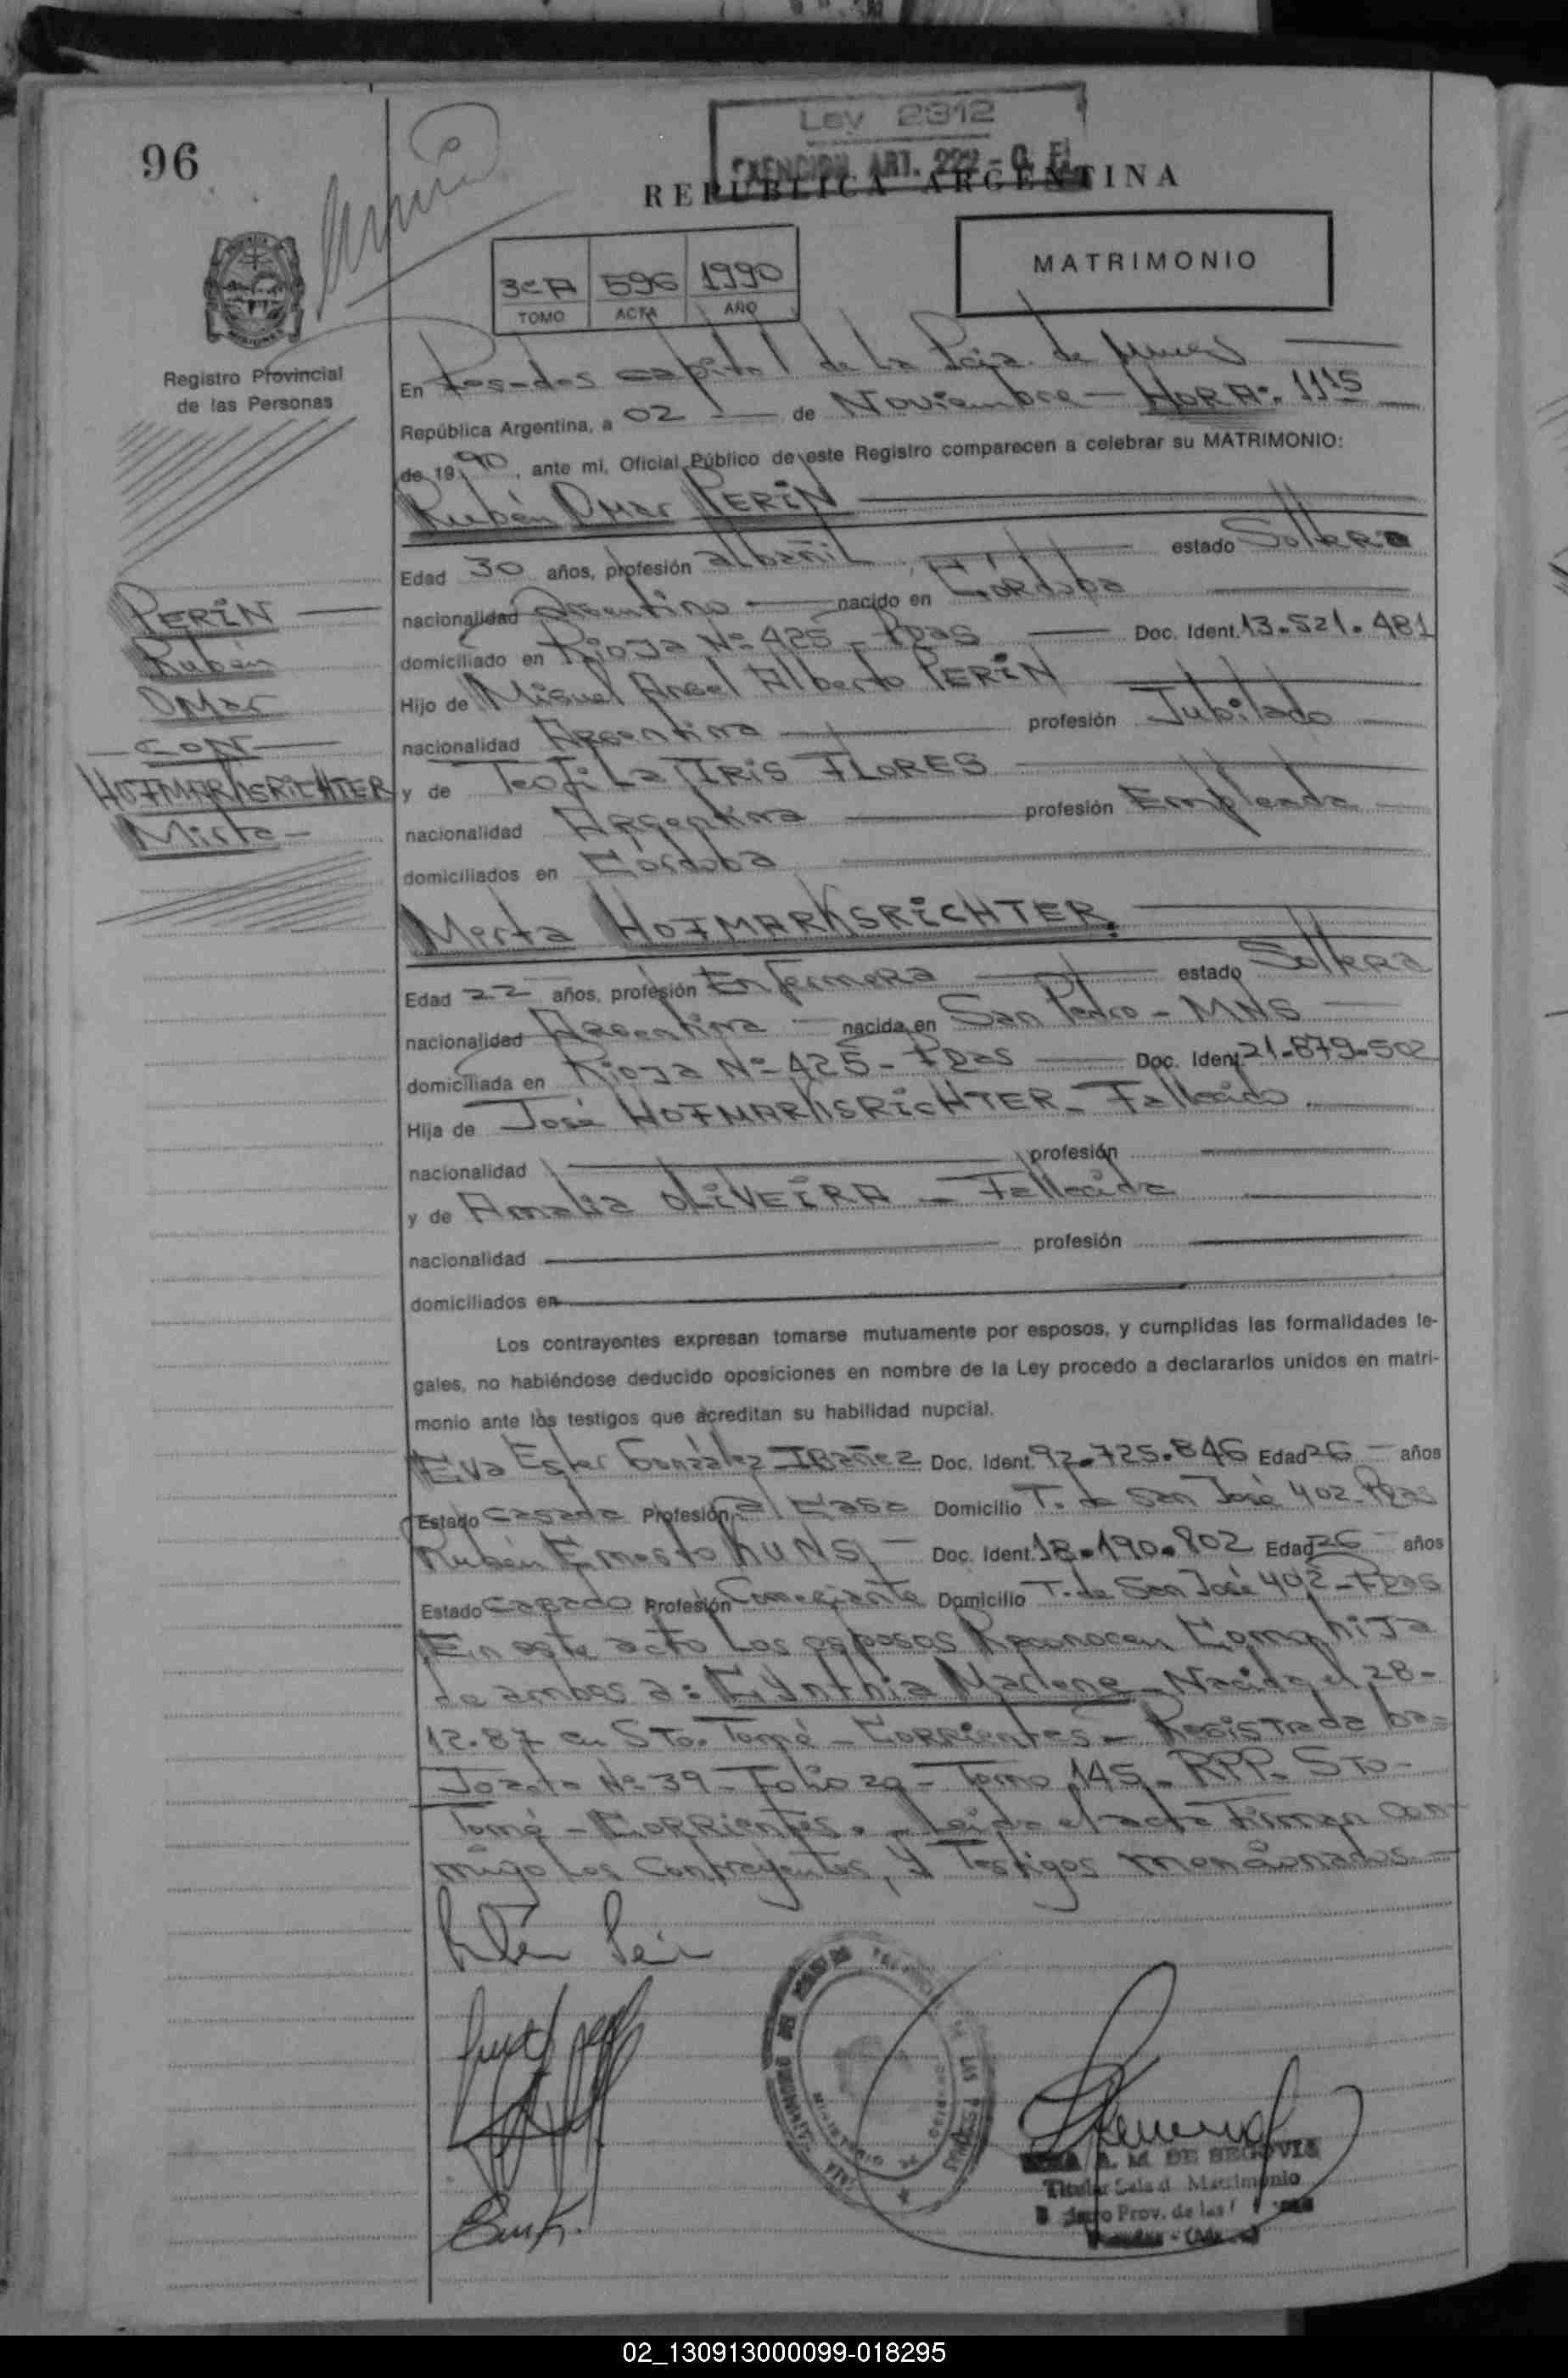 96
Ley 2312
EXENCION ART. 222 - Q. F.
REPUBLICA ARGENTINA
MATRIMONIO
3º A 596 1990
TOMO ACTA AÑO
Registro Provincial
de las Personas
En Posadas capital de la Pcia. de
República Argentina, a 02 de Noviembre - HORA: 11 15
de 1990, ante mi, Oficial Público de este Registro comparecen a celebrar su MATRIMONIO:
Rubén Omar PERIN
Edad 30 años, profesión albañil estado Soltero
nacionalidad Argentina nacido en Córdoba
domiciliado en Rioja Nº 425 - Pdas Doc. Ident. 13.521.481
Hijo de Miguel Angel Alberto PERIN
nacionalidad Argentina profesión Jubilado
y de Teofila IRIS FLORES
nacionalidad Argentina profesión Empleada
domiciliados en Cordoba
PERIN
Rubén
Omar
- CON -
HOFMARKSRICHTER
Mirta -
Mirta HOFMARKSRICHTER.
Edad 22 años, profesión Enfermera estado Soltera
nacionalidad Argentina nacida en San Pedro - MNS
domiciliada en Rioja Nº 425 - Pdas Doc. Ident. 21.879.502
Hija de José HOFMARKSRICHTER - Fallecido
nacionalidad profesión
y de Amalia OLIVEIRA - Fallecida
nacionalidad profesión
domiciliados en
Los contrayentes expresan tomarse mutuamente por esposos, y cumplidas las formalidades le-
gales, no habiéndose deducido oposiciones en nombre de la Ley procedo a declararlos unidos en matri-
monio ante los testigos que acreditan su habilidad nupcial.
Eva Ester González IBañez Doc. Ident. 92.725.846 Edad 26 años
Estado Casada Profesión a/ Casa Domicilio T. de San José 402 - Pdas
Rubén Ernesto KUNS Doc. Ident. 18.190.802 Edad 26 años
Estado Casado Profesión Comerciante Domicilio T. de San José 402 - Pdas
En este acto los esposos Reconocen Como hija
de ambos a: Cynthia Marlene - Nacida el 28-
12.87 en STo. Tomé - Corrientes - Registrada ba-
Jo acta Nº 39 - Folio 20 - Tomo 145 - RPP. STo-
Tomé - Corrientes. - Leida el acta Firman con-
migo los Contrayentes, y Testigos mencionados -
A. M. DE SEGOVIA
Titular Sala d. Matrimonio
Prov. de las
02_130913000099-018295